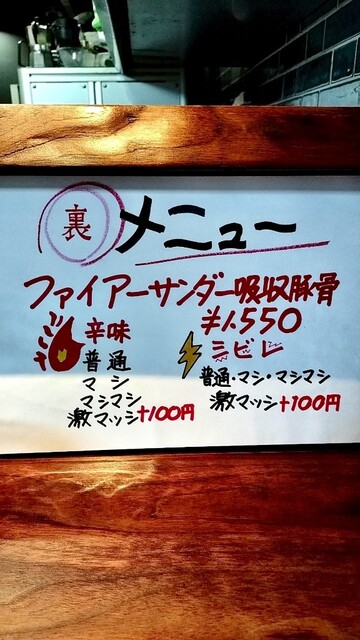 裏メニュー
ファイアーサンダー吸収豚骨
¥1,550
辛味
普通
マシ
マシマシ
激マッシ+100円
シビレ
普通・マシ・マシマシ
激マッシ+100円